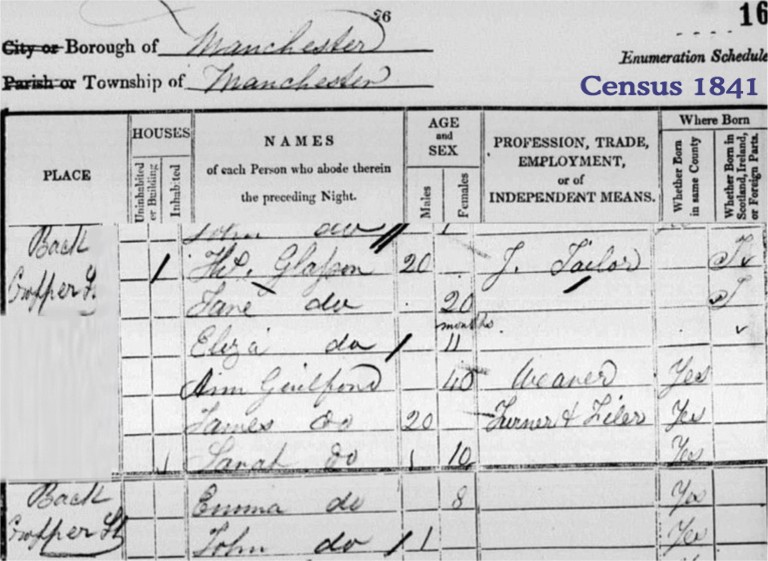 56
16
City or Borough of Manchester
Enumeration Schedule
Parish or Township of Manchester
Census 1841
PLACE
HOUSES
Uninhabited or Building
Inhabited
NAMES
of each Person who abode therein
the preceding Night.
AGE
and
SEX
Males
Females
PROFESSION, TRADE,
EMPLOYMENT,
or of
INDEPENDENT MEANS.
Where Born
Whether Born in same County
Whether Born in Scotland, Ireland, or Foreign Parts.
John do
Back 1 Glasson 20 J. Tailor I
Jane do 20 I
Eliza do 11 months
Ann Guilford 40 Weaver Yes
James do 20 Turner & Filer Yes
1 Sarah do 10 Yes
Back Emma do 8 Yes
Cropper St John do 1 Yes